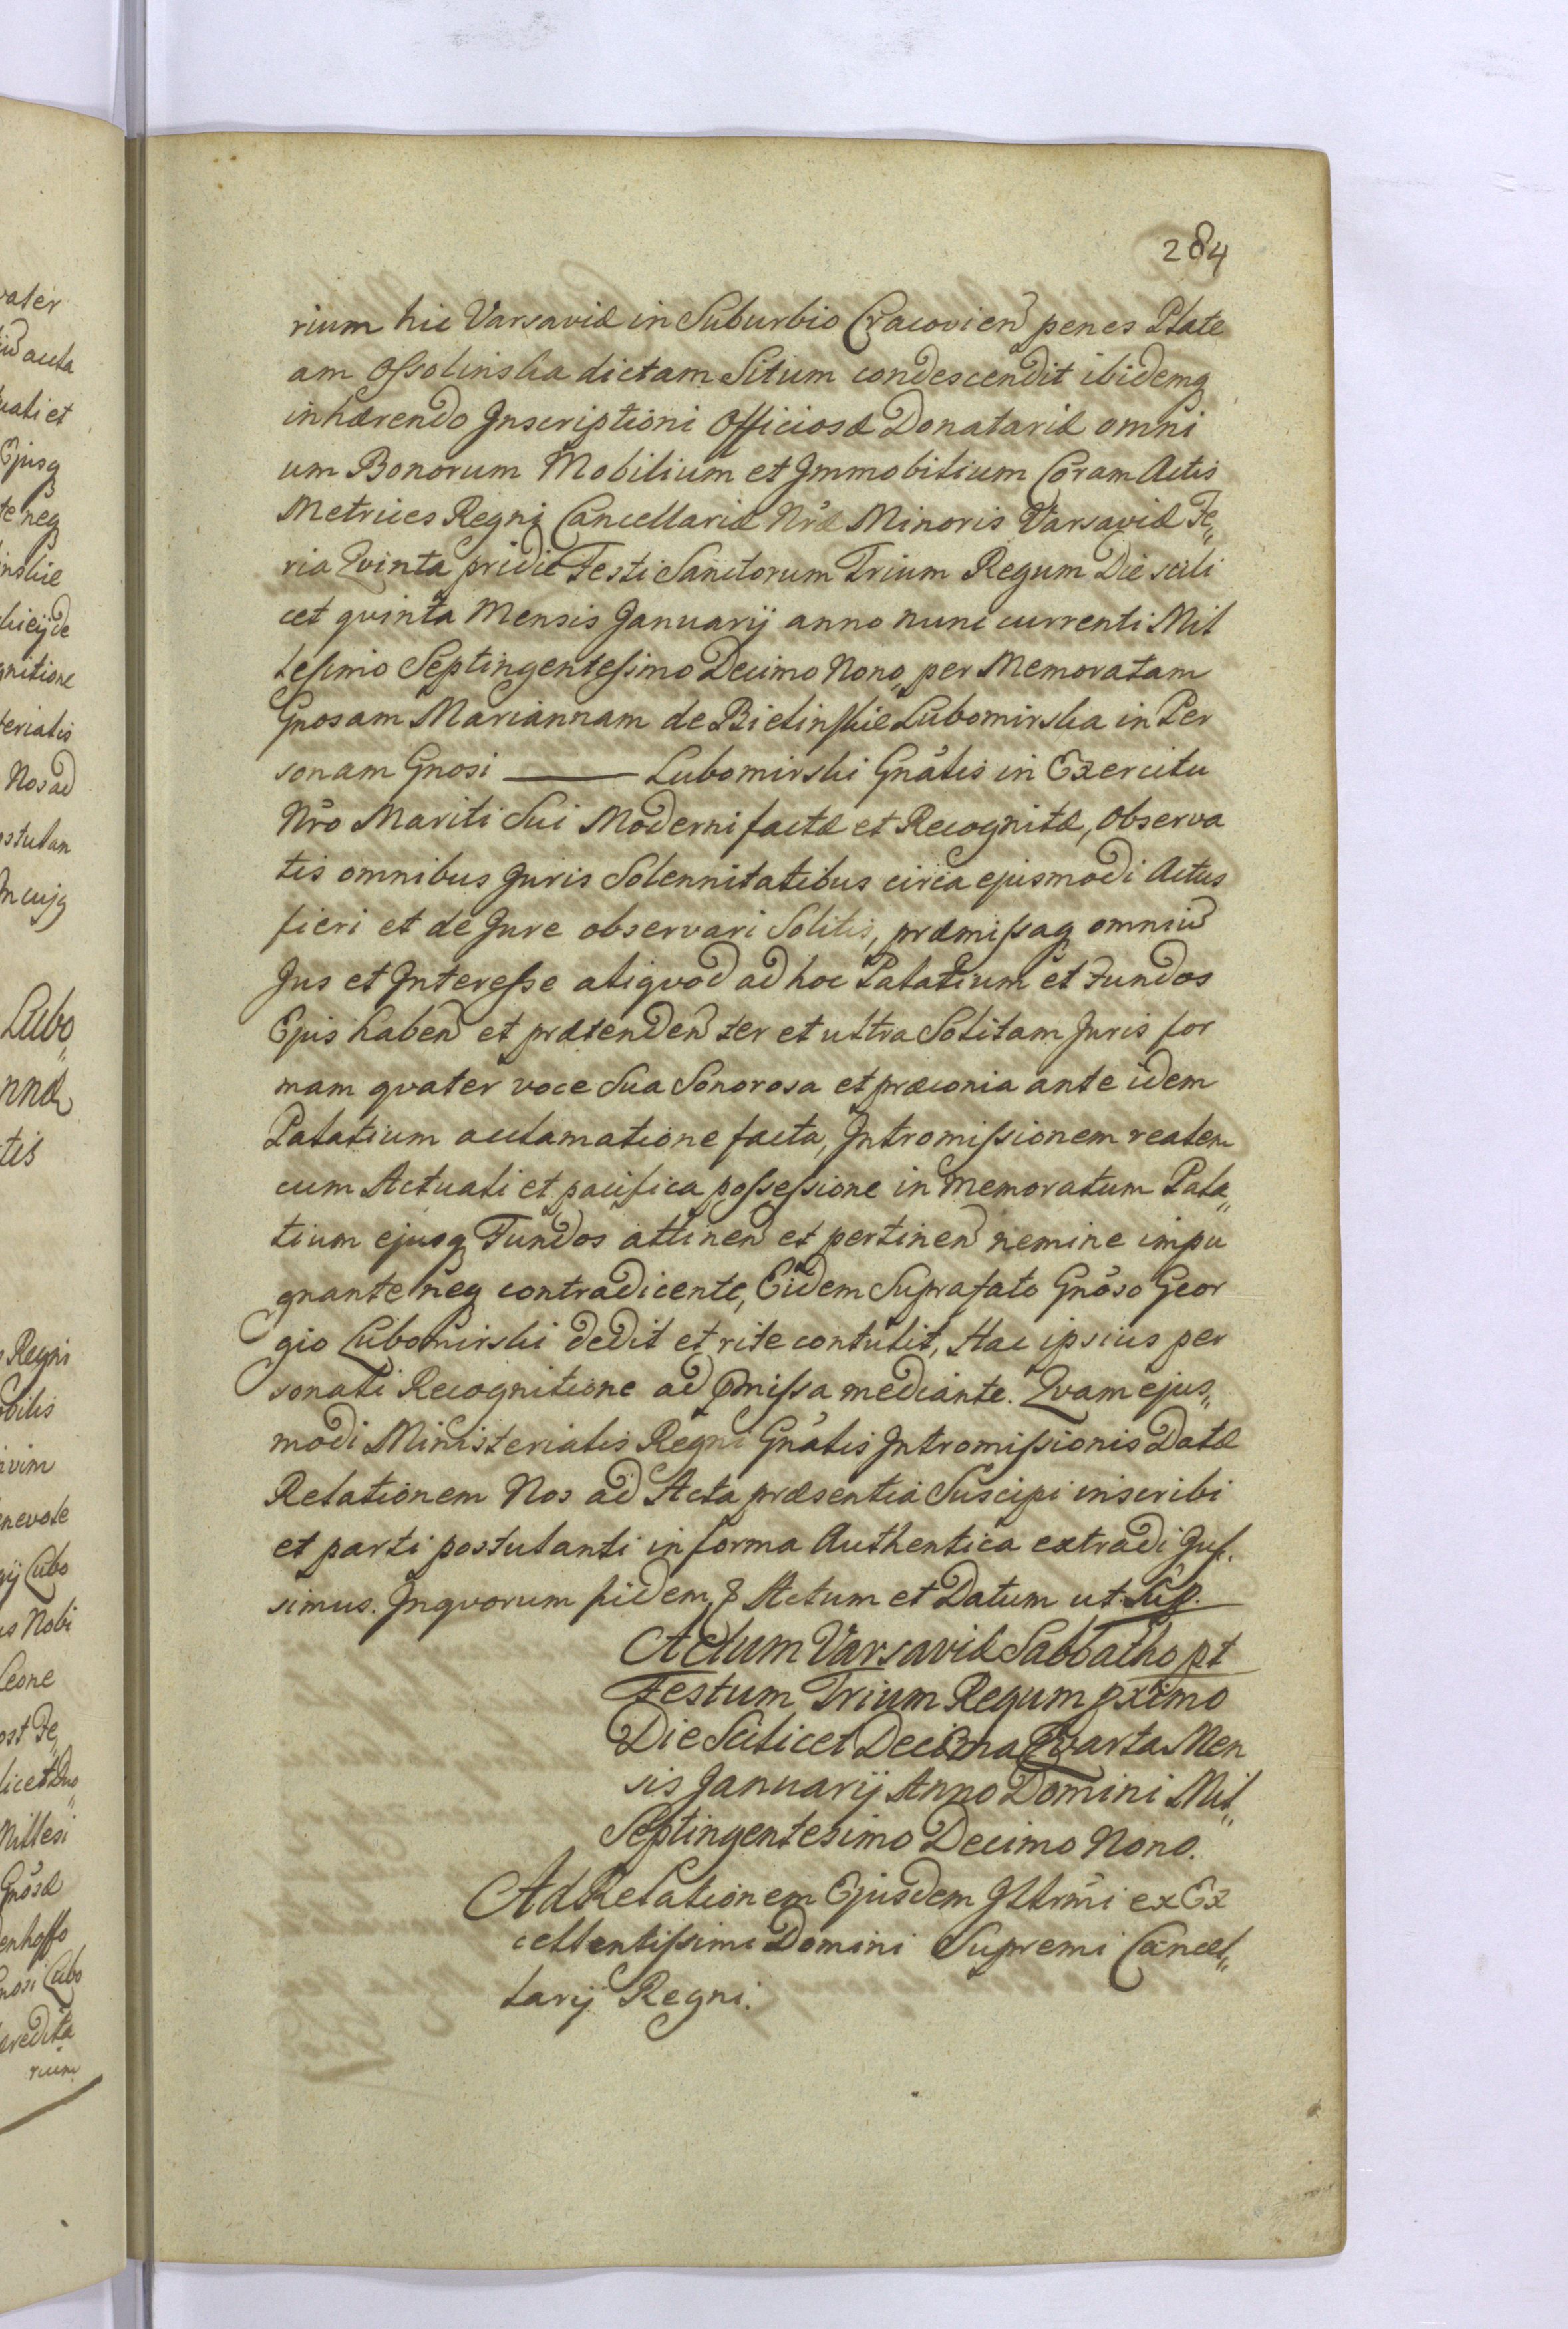 284
rium hic Varsaviæ in Suburbio Cracovien̄ penes Plate
am Ossolinska dictam Situm condescendit ibidemq
inhærendo Inscriptioni Officiosæ Donatariæ omni
um Bonorum Mobilium et Immobilium Coram Actis
Metrices Regni Cancellariæ Nr̄æ Minoris Varsaviæ Fe„
ria Qvinta pridie Festi Sanctorum Trium Regum Die scili
cet qvinta Mensis Januarij anno nunc currenti Mil
lesimo Septingentesimo Decimo Nono, per Memoratam
Gnosam Mariannam de Bielinskie Lubomirska in Per
sonam Gnosi ——— Lubomirski Gnālis in Exercitu
Nr̄o Mariti Sui Moderni factæ et Recognitæ, Observa
tis omnibus Juris Solennitatibus circa ejusmodi Actus
fieri et de Jure observari Solitis, præmissaq omniū
Jus et Interesse aliqvod ad hoc Palatium et Fundos
Ejus haben̄ et prætenden̄ ter et ultra Solitam Juris for
mam qvater voce Sua Sonorosa et præconia ante idem
Palatium acclamatione facta, Intromissionem realem
cum Actuali et pacifica possessione in Memoratum Pala„
tium ejusq Fundos attinen̄ et pertinen̄ nemine impu
gnante neq contradicente, Eidem Suprafato Gnōso Geor
gio Lubomirski dedit et rite contulit, Hac ipsius per
sonali Recognitione ad pmissa mediante. Qvam ejus„
modi Ministerialis Regni Gnālis Intromissionis Datæ
Relationem Nos ad Acta præsentia Suscipi inscribi
et parti postulanti in forma Authentica extradi Jus.
simus. Inqvorum fidem, & Actum et Datum ut Sup.
Actum Varsaviæ Sabbatho pt
Festum Trium Regum pximo
Die Scilicet Decima Qvarta Men
sis Januarij Anno Domini Mil„
Septingentesimo Decimo Nono.
Ad Relationem Ejusdem Illrm̄i ex Ex
cellentissimi Domini Supremi Cancel„
larij Regni.